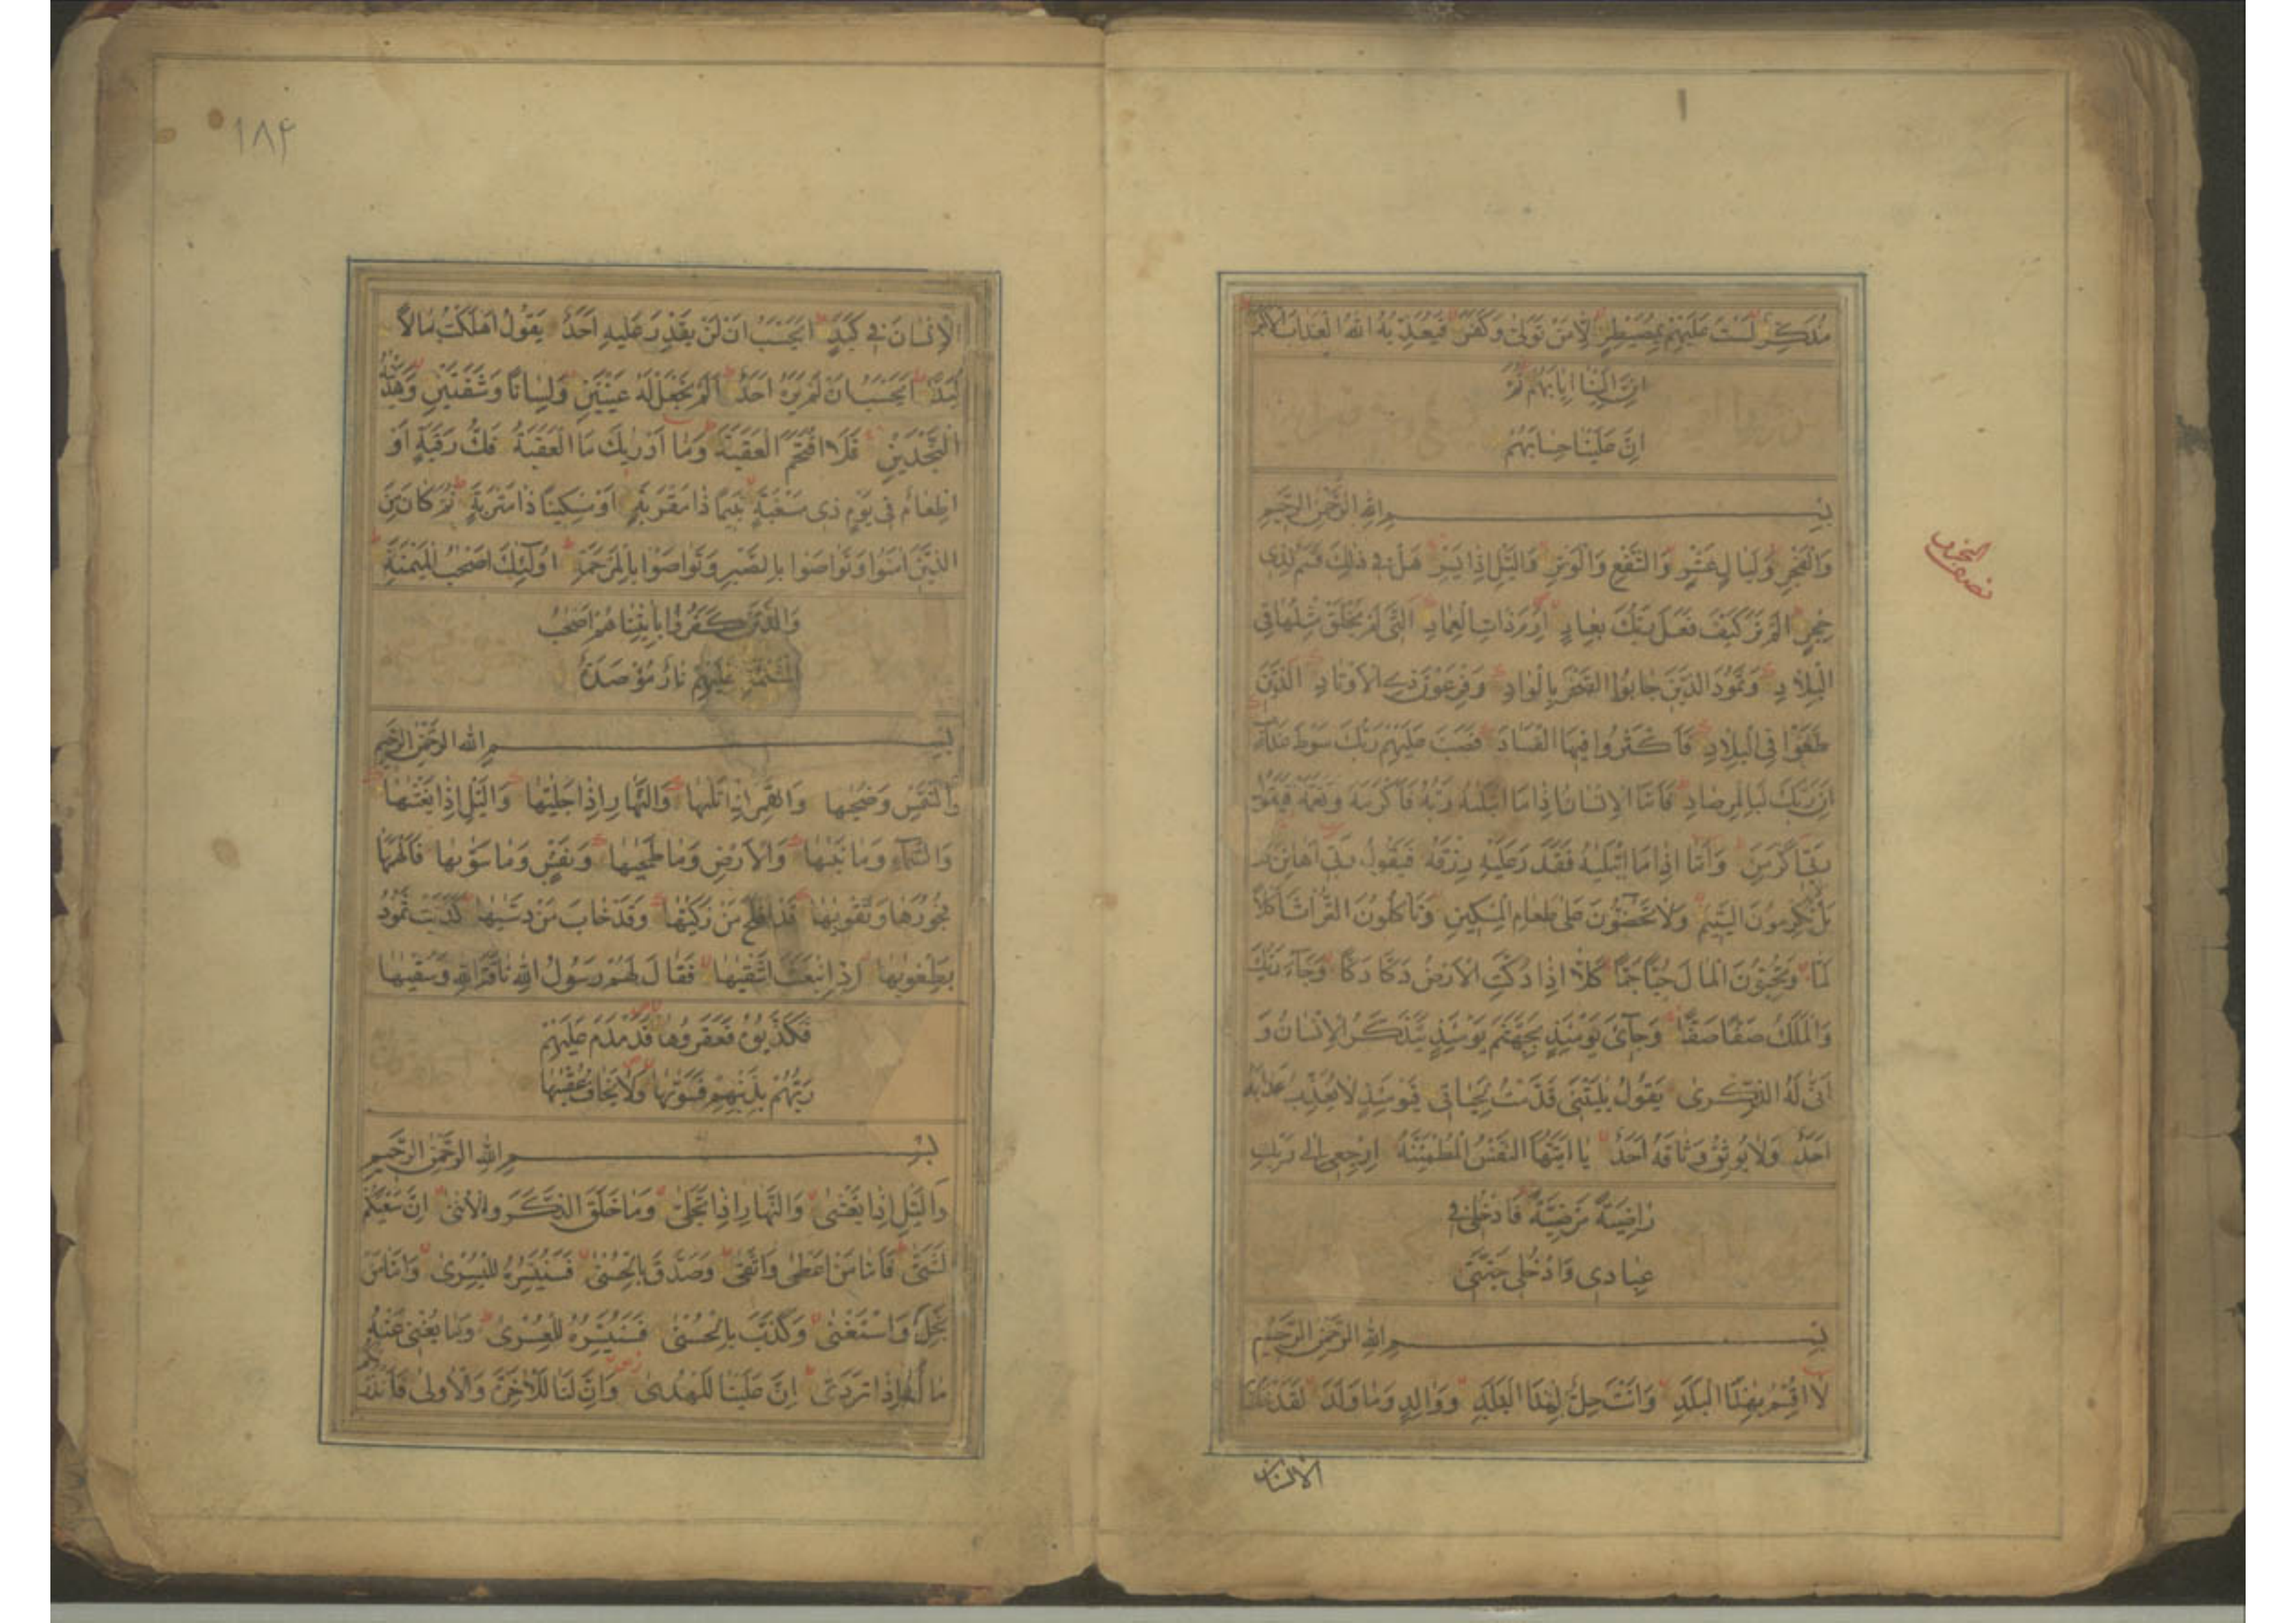 مُذَكِّرٌ لَسْتَ عَلَيْهِمْ بِمُصَيْطِرٍ اِلَّا مَنْ تَوَلّىٰ وَكَفَرَ فَيُعَذِّبُهُ اللهُ الْعَذَابَ الْاَكْبَرَ
اِنَّ اِلَيْنَا اِيَابَهُمْ ثُمَّ
اِنَّ عَلَيْنَا حِسَابَهُمْ
بِسْمِ اللهِ الرَّحْمٰنِ الرَّحِيمِ
وَالْفَجْرِ وَلَيَالٍ عَشْرٍ وَالشَّفْعِ وَالْوَتْرِ وَاللَّيْلِ اِذَا يَسْرِ هَلْ فِي ذٰلِكَ قَسَمٌ لِذِي
حِجْرٍ اَلَمْ تَرَ كَيْفَ فَعَلَ رَبُّكَ بِعَادٍ اِرَمَ ذَاتِ الْعِمَادِ الَّتِي لَمْ يُخْلَقْ مِثْلُهَا فِي
الْبِلَادِ وَثَمُودَ الَّذِينَ جَابُوا الصَّخْرَ بِالْوَادِ وَفِرْعَوْنَ ذِي الْاَوْتَادِ الَّذِينَ
طَغَوْا فِي الْبِلَادِ فَاَكْثَرُوا فِيهَا الْفَسَادَ فَصَبَّ عَلَيْهِمْ رَبُّكَ سَوْطَ عَذَابٍ
اِنَّ رَبَّكَ لَبِالْمِرْصَادِ فَاَمَّا الْاِنْسَانُ اِذَا مَا ابْتَلٰيهُ رَبُّهُ فَاَكْرَمَهُ وَنَعَّمَهُ فَيَقُولُ
رَبِّي اَكْرَمَنِ وَاَمَّا اِذَا مَا ابْتَلٰيهُ فَقَدَرَ عَلَيْهِ رِزْقَهُ فَيَقُولُ رَبِّي اَهَانَنِ
بَلْ لَا تُكْرِمُونَ الْيَتِيمَ وَلَا تَحٰضُّونَ عَلىٰ طَعَامِ الْمِسْكِينِ وَتَاْكُلُونَ التُّرَاثَ اَكْلًا
لَمًّا وَتُحِبُّونَ الْمَالَ حُبًّا جَمًّا كَلَّا اِذَا دُكَّتِ الْاَرْضُ دَكًّا دَكًّا وَجَاءَ رَبُّكَ
وَالْمَلَكُ صَفًّا صَفًّا وَجِايءَ يَوْمَئِذٍ بِجَهَنَّمَ يَوْمَئِذٍ يَتَذَكَّرُ الْاِنْسَانُ وَ
اَنّىٰ لَهُ الذِّكْرىٰ يَقُولُ يٰلَيْتَنِي قَدَّمْتُ لِحَيَاتِي فَيَوْمَئِذٍ لَا يُعَذِّبُ عَذَابَهُ
اَحَدٌ وَلَا يُوثِقُ وَثَاقَهُ اَحَدٌ يَا اَيَّتُهَا النَّفْسُ الْمُطْمَئِنَّةُ ارْجِعِي اِلىٰ رَبِّكِ
رَاضِيَةً مَرْضِيَّةً فَادْخُلِي فِي
عِبَادِي وَادْخُلِي جَنَّتِي
بِسْمِ اللهِ الرَّحْمٰنِ الرَّحِيمِ
لَا اُقْسِمُ بِهٰذَا الْبَلَدِ وَاَنْتَ حِلٌّ بِهٰذَا الْبَلَدِ وَوَالِدٍ وَمَا وَلَدَ لَقَدْ خَلَقْنَا
الانسان
نصف الحزب
۱۸۴
الْاِنْسَانَ فِي كَبَدٍ اَيَحْسَبُ اَنْ لَنْ يَقْدِرَ عَلَيْهِ اَحَدٌ يَقُولُ اَهْلَكْتُ مَالًا
لُبَدًا اَيَحْسَبُ اَنْ لَمْ يَرَهُ اَحَدٌ اَلَمْ نَجْعَلْ لَهُ عَيْنَيْنِ وَلِسَانًا وَشَفَتَيْنِ وَهَدَيْنَاهُ
النَّجْدَيْنِ فَلَا اقْتَحَمَ الْعَقَبَةَ وَمَا اَدْرٰيكَ مَا الْعَقَبَةُ فَكُّ رَقَبَةٍ اَوْ
اِطْعَامٌ فِي يَوْمٍ ذِي مَسْغَبَةٍ يَتِيمًا ذَا مَقْرَبَةٍ اَوْ مِسْكِينًا ذَا مَتْرَبَةٍ ثُمَّ كَانَ مِنَ
الَّذِينَ اٰمَنُوا وَتَوَاصَوْا بِالصَّبْرِ وَتَوَاصَوْا بِالْمَرْحَمَةِ اُولٰئِكَ اَصْحٰبُ الْمَيْمَنَةِ
وَالَّذِينَ كَفَرُوا بِاٰيٰتِنَا هُمْ اَصْحٰبُ
الْمَشْئَمَةِ عَلَيْهِمْ نَارٌ مُؤْصَدَةٌ
بِسْمِ اللهِ الرَّحْمٰنِ الرَّحِيمِ
وَالشَّمْسِ وَضُحٰيهَا وَالْقَمَرِ اِذَا تَلٰيهَا وَالنَّهَارِ اِذَا جَلّٰيهَا وَاللَّيْلِ اِذَا يَغْشٰيهَا
وَالسَّمَاءِ وَمَا بَنٰيهَا وَالْاَرْضِ وَمَا طَحٰيهَا وَنَفْسٍ وَمَا سَوّٰيهَا فَاَلْهَمَهَا
فُجُورَهَا وَتَقْوٰيهَا قَدْ اَفْلَحَ مَنْ زَكّٰيهَا وَقَدْ خَابَ مَنْ دَسّٰيهَا كَذَّبَتْ ثَمُودُ
بِطَغْوٰيهَا اِذِ انْبَعَثَ اَشْقٰيهَا فَقَالَ لَهُمْ رَسُولُ اللهِ نَاقَةَ اللهِ وَسُقْيٰهَا
فَكَذَّبُوهُ فَعَقَرُوهَا فَدَمْدَمَ عَلَيْهِمْ
رَبُّهُمْ بِذَنْبِهِمْ فَسَوّٰيهَا وَلَا يَخَافُ عُقْبٰيهَا
بِسْمِ اللهِ الرَّحْمٰنِ الرَّحِيمِ
وَاللَّيْلِ اِذَا يَغْشىٰ وَالنَّهَارِ اِذَا تَجَلّىٰ وَمَا خَلَقَ الذَّكَرَ وَالْاُنْثىٰ اِنَّ سَعْيَكُمْ
لَشَتّىٰ فَاَمَّا مَنْ اَعْطىٰ وَاتَّقىٰ وَصَدَّقَ بِالْحُسْنىٰ فَسَنُيَسِّرُهُ لِلْيُسْرىٰ وَاَمَّا مَنْ
بَخِلَ وَاسْتَغْنىٰ وَكَذَّبَ بِالْحُسْنىٰ فَسَنُيَسِّرُهُ لِلْعُسْرىٰ وَمَا يُغْنِي عَنْهُ
مَالُهُ اِذَا تَرَدّىٰ اِنَّ عَلَيْنَا لَلْهُدىٰ وَاِنَّ لَنَا لَلْاٰخِرَةَ وَالْاُولىٰ فَاَنْذَرْتُكُمْ